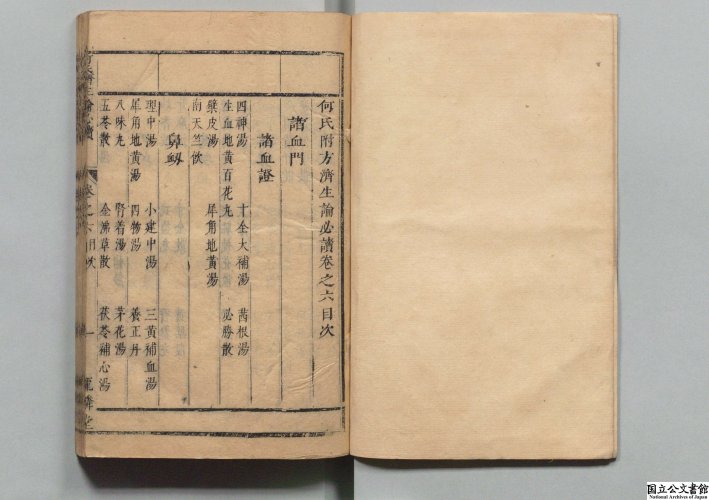 何氏附方濟生論必讀卷之六目次
諸血門
諸血證
四神湯 十全大補湯 茜根湯
生血地黃百花丸 必勝散
檗皮湯 犀角地黃湯
南天竺飲
鼻衂
理中湯 小建中湯 三黃補血湯
犀角地黃湯 四物湯 養正丹
八味丸 腎着湯 茅花湯
五苓散湯 金沸草散 茯苓補心湯
卷之六目次 一
国立公文書館
National Archives of Japan